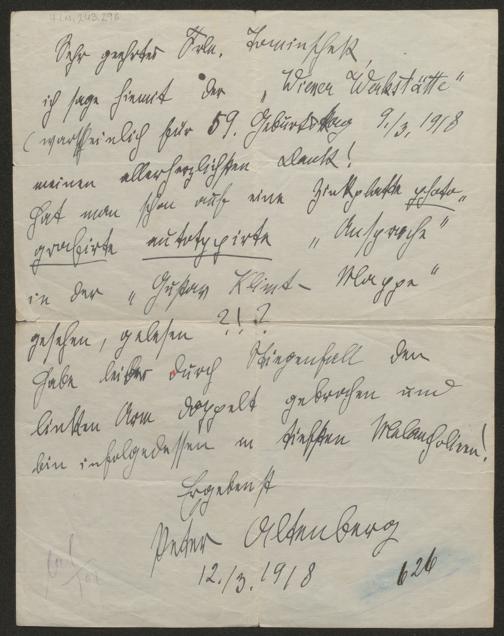 H.I.N. 243.296
Sehr geehrtes Frln.
ich sage hiemit der „Wiener Werkstätte"
(wahrscheinlich für 59. Geburtstag 9./3. 1918
meinen allerherzlichsten Dank!
Hat man schon auf eine Zinkplatte photo„
grafirte autotypirte „Ansprache"
in der „Gustav Klimt-Mappe"
gesehen, gelesen ?!?
Habe leider durch Stiegenfall den
linken Arm doppelt gebrochen und
bin infolgedessen in tiefsten Melancholieen!
Ergebenst
Peter Altenberg
12./3. 1918
626